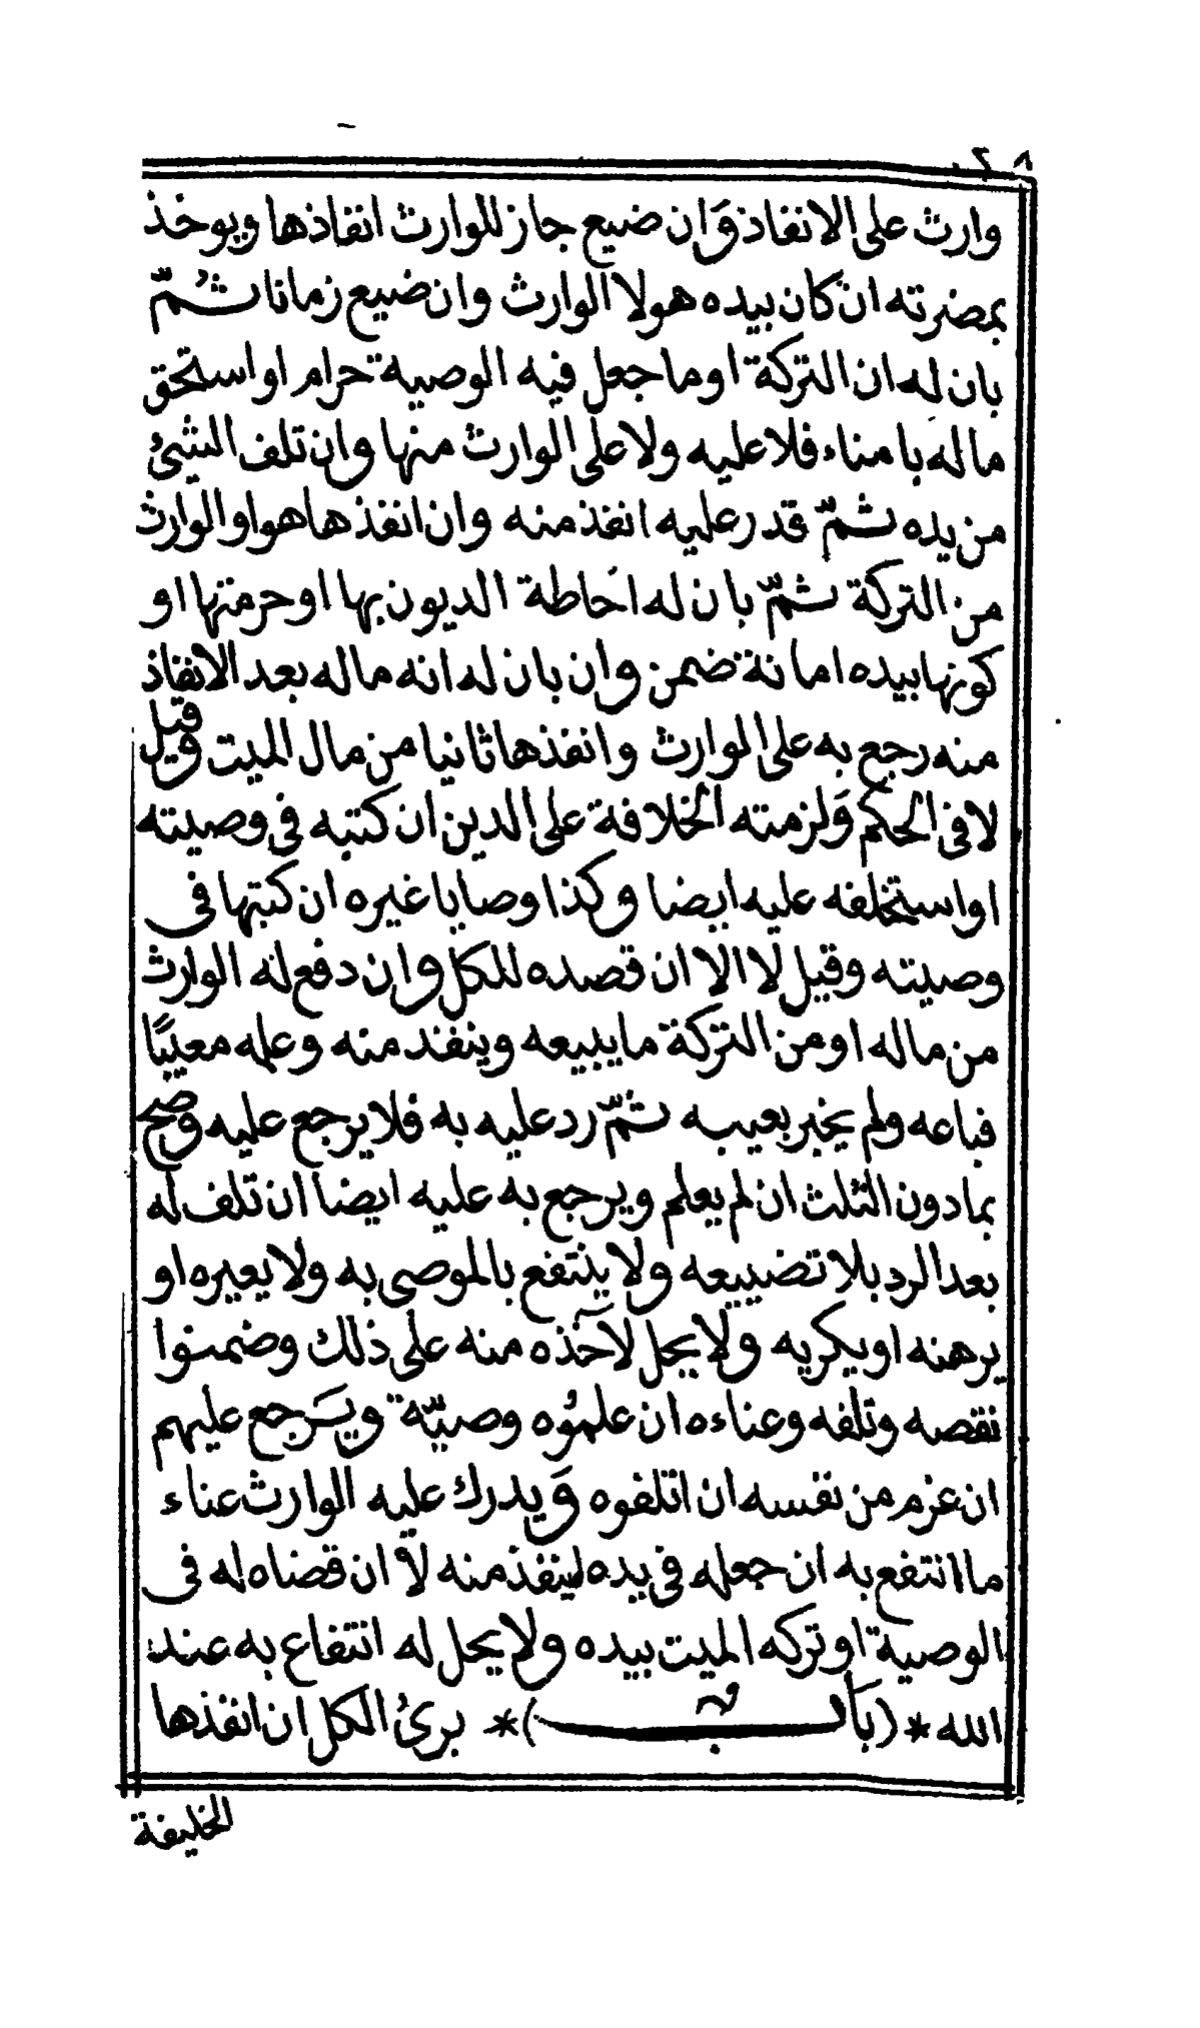 ٢٠٨
وارث على الانفاذ وَان ضيع جاز للوارث انفاذها ويوخذ
بمضرته ان كان بيده هولا الوارث وان ضيع زمانا ثُمّ
بان له ان التركة او ما جعل فيه الوصية حرام او استحق
ماله با مناء فلا عليه ولا على الوارث منها وان تلف الشئ
من يده ثمّ قدر عليه انفذ منه وان انفذها هو او الوارث
من التركة ثمّ بان له احَاطة الديون بها او حرمتها او
كونها بيده امانة ضمن وان بان له انه ماله بعد الانفاذ
منه رجع به على الوارث وانفذها ثانيا من مال الميت وقيل
لا فى الحكم وَلزمته الخلافة على الدين ان كتبه فى وصيته
او استخلفه عليه ايضا وكذا وصايا غيره ان كتبها فى
وصيته وقيل لا الا ان قصده للكل وان دفع له الوارث
من ماله او من التركة ما يبيعه وينفذ منه وعلمه معيبًا
فباعه ولم يخبر بعيبه ثمّ رد عليه به فلا يرجع عليه وصح
بما دون الثلث ان لم يعلم ويرجع به عليه ايضا ان تلف له
بعد الرد بلا تضييعه ولا ينتفع بالموصى به ولا يعيره او
يرهنه او يكريه ولا يحل لآخذه منه على ذلك وضمنوا
نقصه وتلفه وعناءه ان علموُه وصيّة ويَرجع عليهم
ان غرم من نفسه ان اتلفوه وَيدرك عليه الوارث عناء
ما انتفع به ان جعله فى يده لينفذ منه لا ان قضاه له فى
الوصية او تركه الميت بيده ولا يحل له انتفاع به عند
الله * (بَاب) * برئُ الكل ان انفذها
الخليفة